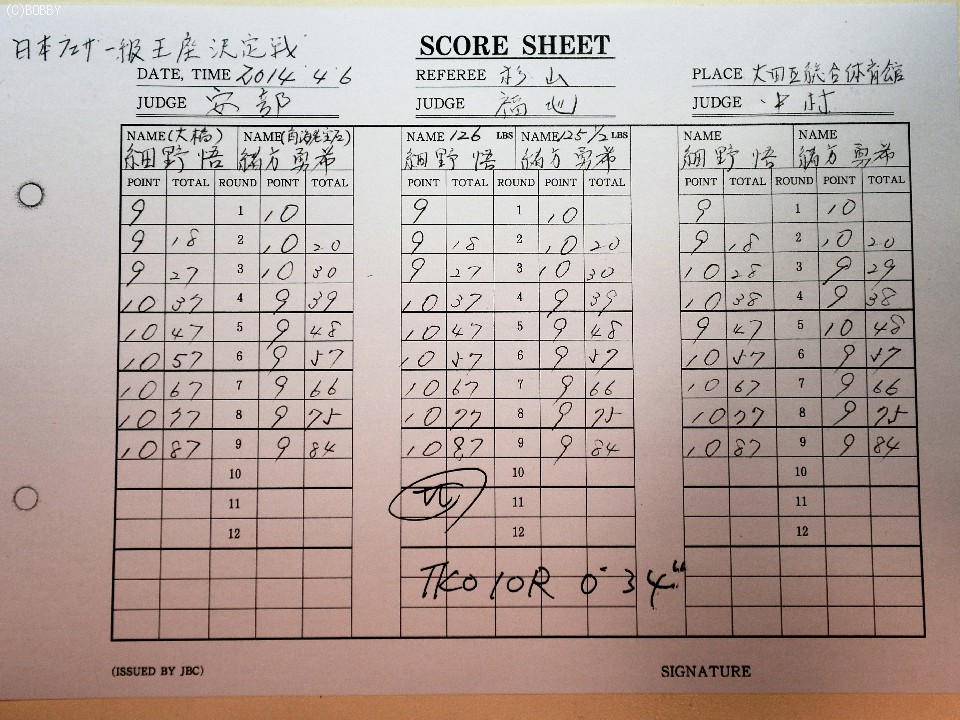 (C)BOBBY
日本フェザー級王座決定戦
SCORE SHEET
DATE, TIME 2014 4 6 REFEREE 杉山 PLACE 大田区総合体育館
JUDGE 安部 JUDGE 福地 JUDGE 中村
NAME (大橋) NAME NAME 126 LBS NAME 125 1/2 LBS NAME NAME
細野 悟 緒方勇希 細野 悟 緒方勇希 細野 悟 緒方勇希
POINT TOTAL ROUND POINT TOTAL POINT TOTAL ROUND POINT TOTAL POINT TOTAL ROUND POINT TOTAL
9 1 10 9 1 10 9 1 10
9 18 2 10 20 9 18 2 10 20 9 18 2 10 20
9 27 3 10 30 9 27 3 10 30 10 28 3 9 29
10 37 4 9 39 10 37 4 9 39 10 38 4 9 38
10 47 5 9 48 10 47 5 9 48 9 47 5 10 48
10 57 6 9 57 10 57 6 9 57 10 57 6 9 57
10 67 7 9 66 10 67 7 9 66 10 67 7 9 66
10 77 8 9 75 10 77 8 9 75 10 77 8 9 75
10 87 9 9 84 10 87 9 9 84 10 87 9 9 84
10 10 10
11 11 11
12 12 12
TKO 10R 0'34"
(ISSUED BY JBC) SIGNATURE